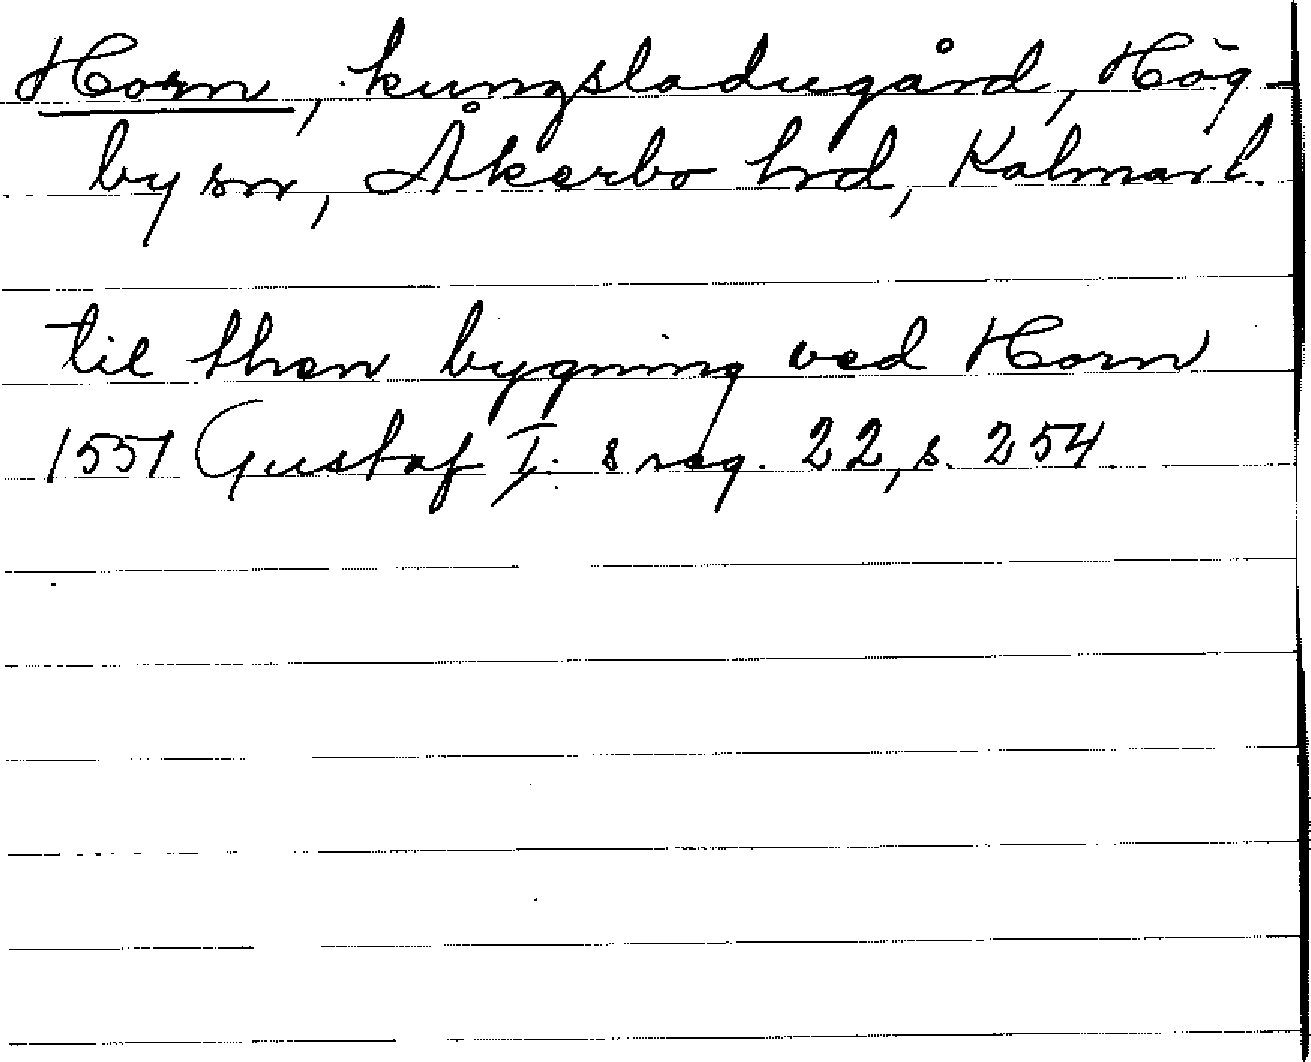 Horn, kungsladugård, Hög-
by sn, Åkerbo hrd, Kalmar l.
til then bygning ved Horn
1551 Gustaf I:s reg. 22, s. 254